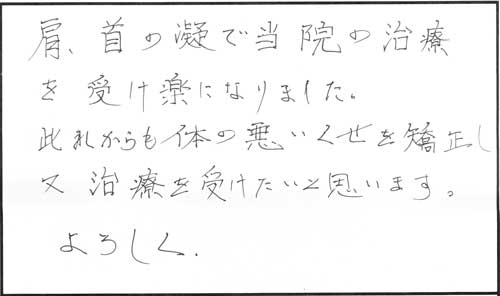 肩、首の凝で当院の治療
を受け楽になりました。
此れからも体の悪いくせを矯正し
又治療を受けたいと思います。
よろしく.